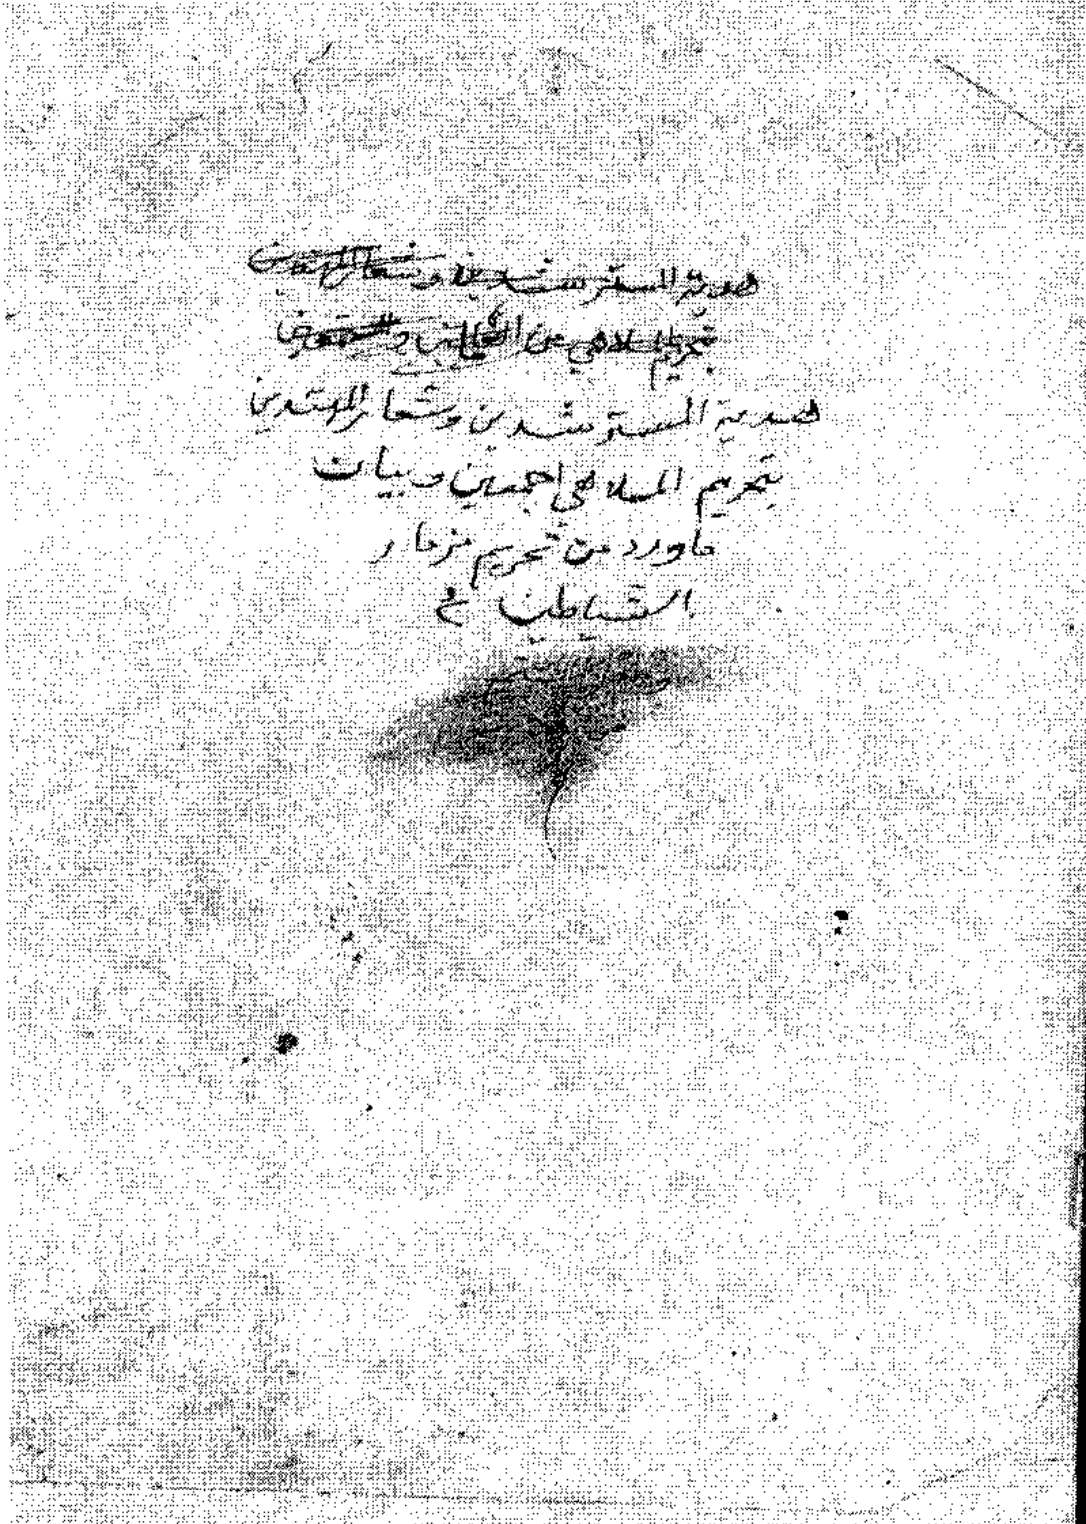 هدية المسترشدين وشعار المهتدين
بتحريم الملاهي من
هدية المسترشدين وشعار المهتدين
بتحريم الملاهي اجمعين وبيان
ماورد من تحريم مزمار
الشياطين